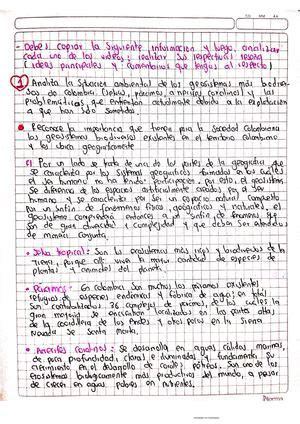 Debes copiar la siguiente información y luego, analizar
cada uno de los videos; realizar sus respectivas resena
(ideas principales y comentarios que tengas al respecto)
① Analiza la situación ambiental de los geosistemas más biodiver-
sos de colombia (selvas, páramos, arrecifes coralinos) y las
problemáticas que enfrentan actualmente debido a la explotación
a que han sido sometidos.
• Reconoce la importancia que tienen para la sociedad colombiana
los geosistemas biodiversos existentes en el territorio colombiano
y los ubica geográficamente
R/ Por un lado se trata de una de las partes de la geografía que
se caracteriza por los sistemas geográficos formados en los cuales
el ser humano no ha tenido participación por esto, el geosistema
se diferencia de los espacios artificialmente creados por el ser
humano y se caracteriza por ser un espacio natural compuesto
por un sinfín de fenómenos físicos, geográficos y naturales, el
geosistema comprenderá entonces a un sinfín de fenómenos que
son de gran diversidad y complejidad y que deben ser atendidos
de manera conjunta.
• Selva tropical: Son los ecosistemas más ricos y biodiversos de la
Tierra, porque allí vive la mayor cantidad de especies de
plantas y animales del planeta.
• Páramos: En colombia son muchos los páramos existentes
refugios de especies endémicas y fábrica de agua; en total
son contabilizados 36 complejos de páramos, de los cuales la
gran mayoría se encuentran localizados en las partes altas
de la cordillera de los Andes y otros pocos en la Sierra
Nevada de Santa Marta.
• Arrecifes coralinos: Se desarrolla en aguas cálidas, marinas,
de poca profundidad, claras e iluminadas y fundamenta su
crecimiento en el desarrollo de corales pétreos. Son uno de los
ecosistemas biológicamente más productivos del mundo, a pesar
de crecer en aguas pobres en nutrientes.
Norma